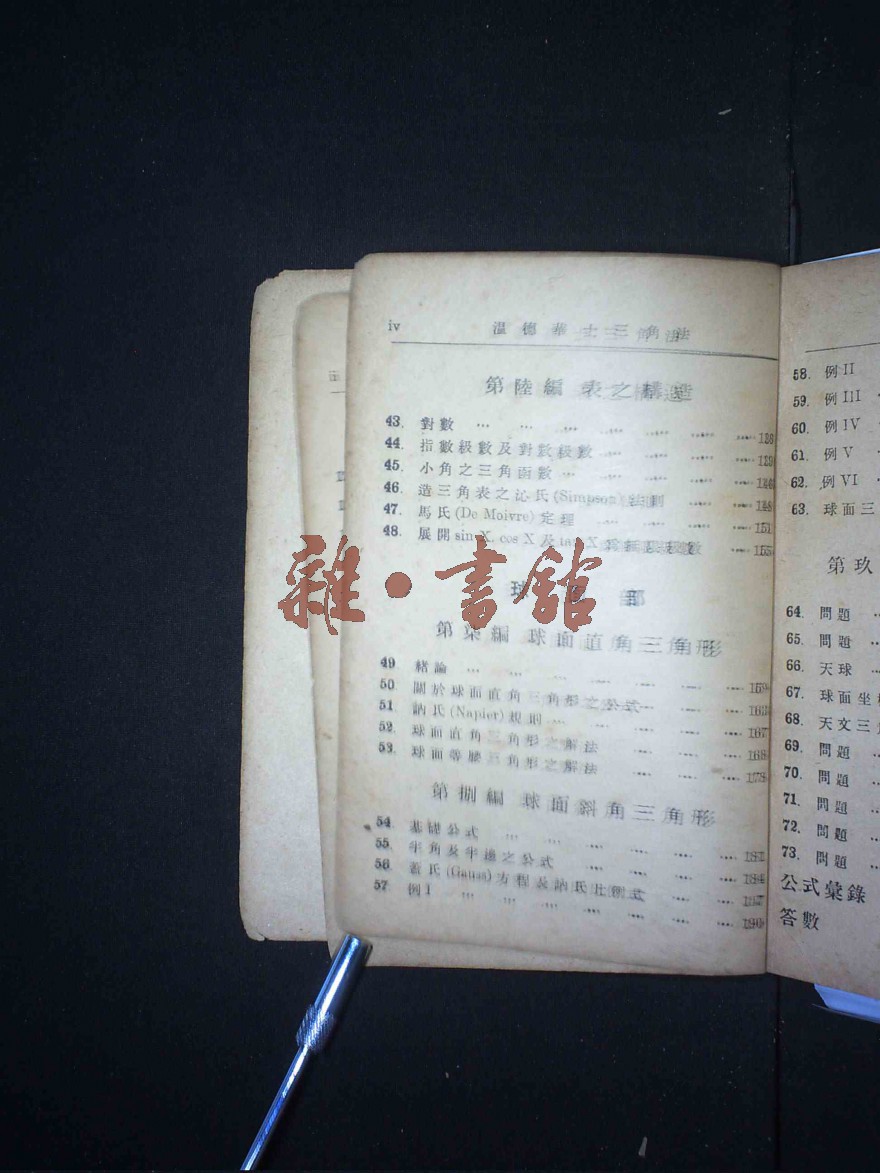 iv 溫德華士三角法
第陸編 表之構造
43. 對數 … … … … … … … 128
44. 指數級數及對數級數 … … … …
45. 小角之三角函數 … … … … …
46. 造三角表之沁氏 (Simpson) 法則 … …
47. 馬氏 (De Moivre) 定理 … … … … 151
48. 展開 sin X, cos X 及 tan X 爲無限級數 … 155
雜·書舘
球面部
第柒編 球面直角三角形
49 緒論 … … … … … … … 159
50 關於球面直角三角形之公式 … … …
51 訥氏 (Napier) 規則 … … … … 167
52. 球面直角三角形之解法 … … … 168
53. 球面等腰三角形之解法 … … … 178
第捌編 球面斜角三角形
54. 基礎公式 … … … … … …
55. 半角及半邊之公式 … … … …
56 蓋氏 (Gauss) 方程及訥氏比例式 … …
57 例 I … … … … … … …
58. 例 II
59. 例 III
60. 例 IV
61. 例 V
62. 例 VI
63. 球面三
第玖
64. 問題 …
65. 問題 …
66. 天球 …
67. 球面坐
68. 天文三
69. 問題 …
70. 問題 …
71. 問題 …
72. 問題 …
73. 問題 …
公式彙錄
答數